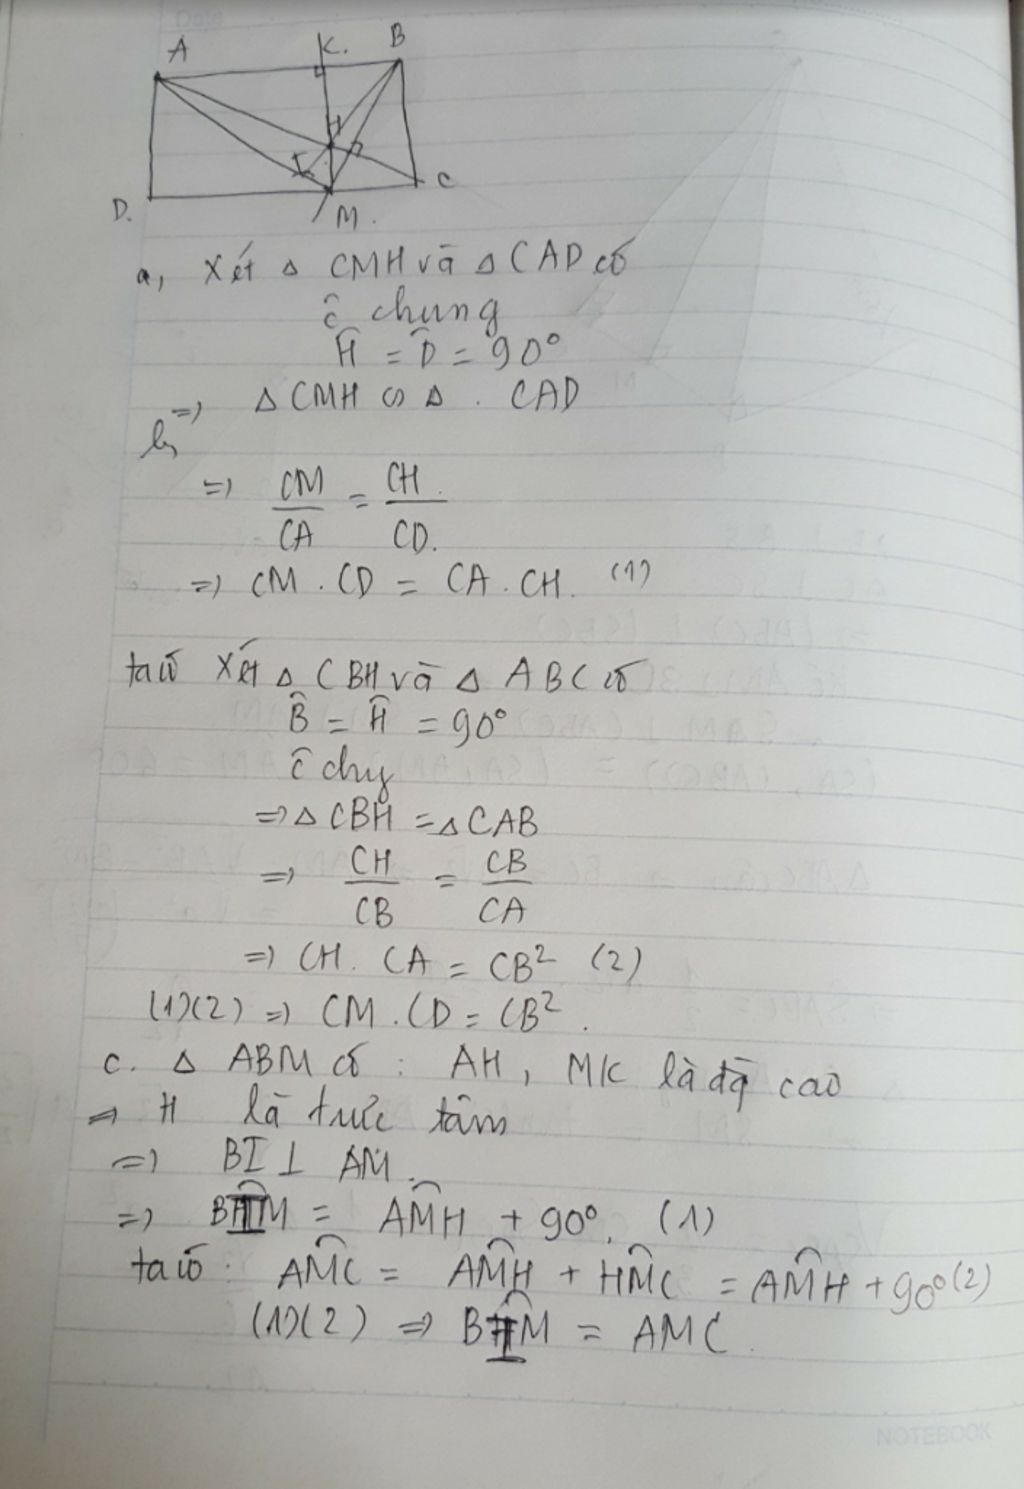 Date
A K. B
H
I
D. M. C
a, Xét △ CMH và △ CAD có
ĉ chung
Ĥ = D̂ = 90°
=> △ CMH ∽ △ . CAD
b,
=> CM/CA = CH/CD.
=> CM . CD = CA . CH. (1)
ta có Xét △ CBH và △ ABC có
B̂ = Ĥ = 90°
ĉ chg
=> △ CBH = △ CAB
=> CH/CB = CB/CA
=> CH. CA = CB² (2)
(1)(2) => CM . CD = CB².
c. △ ABM có : AH, MK là đg cao
=> H là trưc tâm
=> BI ⊥ AM.
=> = AMH + 90°. (1)
ta có : AMC = AMH + HMC = AMH + 90° (2)
(1)(2) => = AMC.
NOTEBOOK